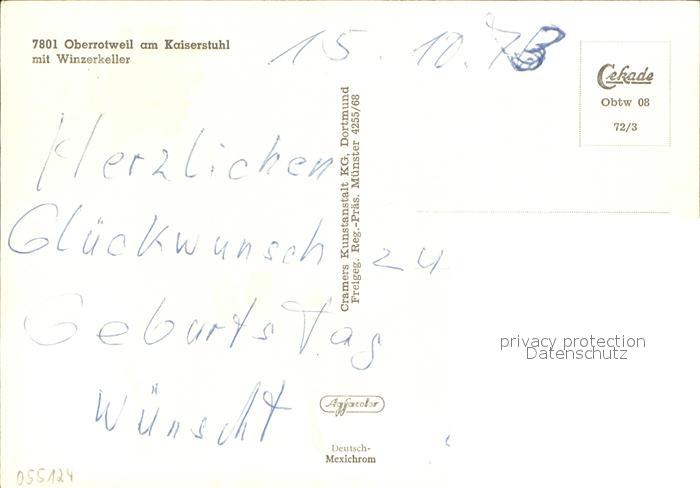 7801 Oberrotweil am Kaiserstuhl
mit Winzerkeller
15. 10. 73
Cekade
Obtw 08
72/3
Herzlichen
Glückwunsch zu
Geburts Tag
wünscht
Cramers Kunstanstalt KG, Dortmund
Freigeg. Reg.-Präs. Münster 4255/68
privacy protection
Datenschutz
Agfacolor
Deutsch-
Mexichrom
055124